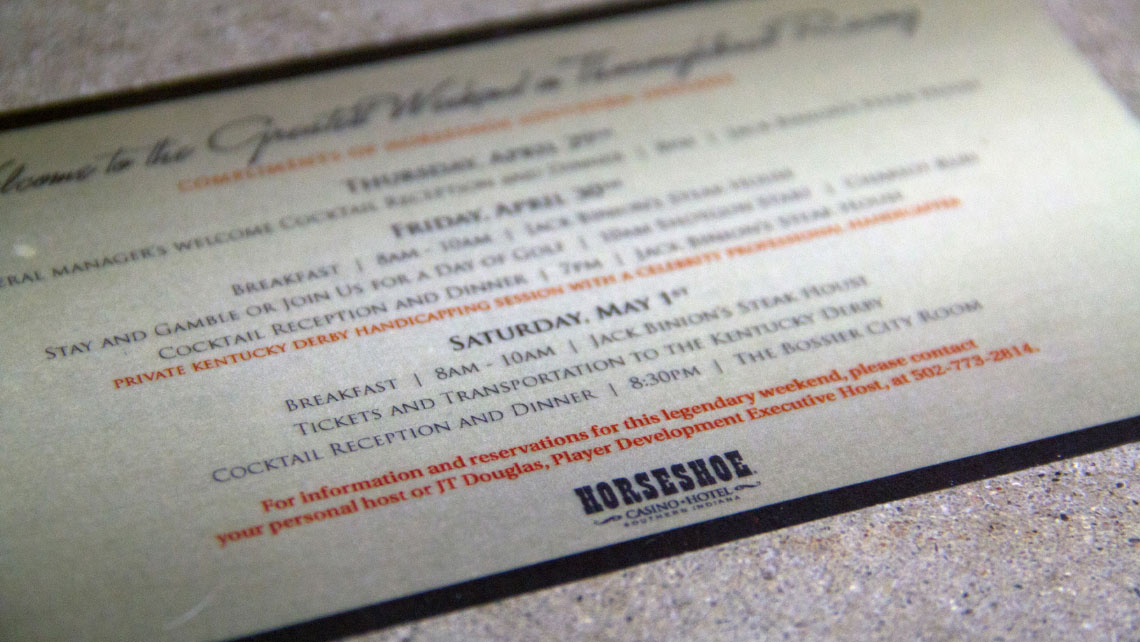 lcome to the Greatest Weekend in Thoroughbred Racing
COMPLIMENTS OF HORSESHOE SOUTHERN INDIANA
THURSDAY, APRIL 29TH
ERAL MANAGER'S WELCOME COCKTAIL RECEPTION AND DINNER | 8PM | JACK BINION'S STEAK HOUSE
FRIDAY, APRIL 30TH
BREAKFAST | 8AM - 10AM | JACK BINION'S STEAK HOUSE
STAY AND GAMBLE OR JOIN US FOR A DAY OF GOLF | 10AM SHOTGUN START | CHARIOT RUN
COCKTAIL RECEPTION AND DINNER | 7PM | JACK BINION'S STEAK HOUSE
PRIVATE KENTUCKY DERBY HANDICAPPING SESSION WITH A CELEBRITY PROFESSIONAL HANDICAPPER
SATURDAY, MAY 1ST
BREAKFAST | 8AM - 10AM | JACK BINION'S STEAK HOUSE
TICKETS AND TRANSPORTATION TO THE KENTUCKY DERBY
COCKTAIL RECEPTION AND DINNER | 8:30PM | THE BOSSIER CITY ROOM
For information and reservations for this legendary weekend, please contact
your personal host or JT Douglas, Player Development Executive Host, at 502-773-2814.
HORSESHOE
CASINO • HOTEL
SOUTHERN INDIANA